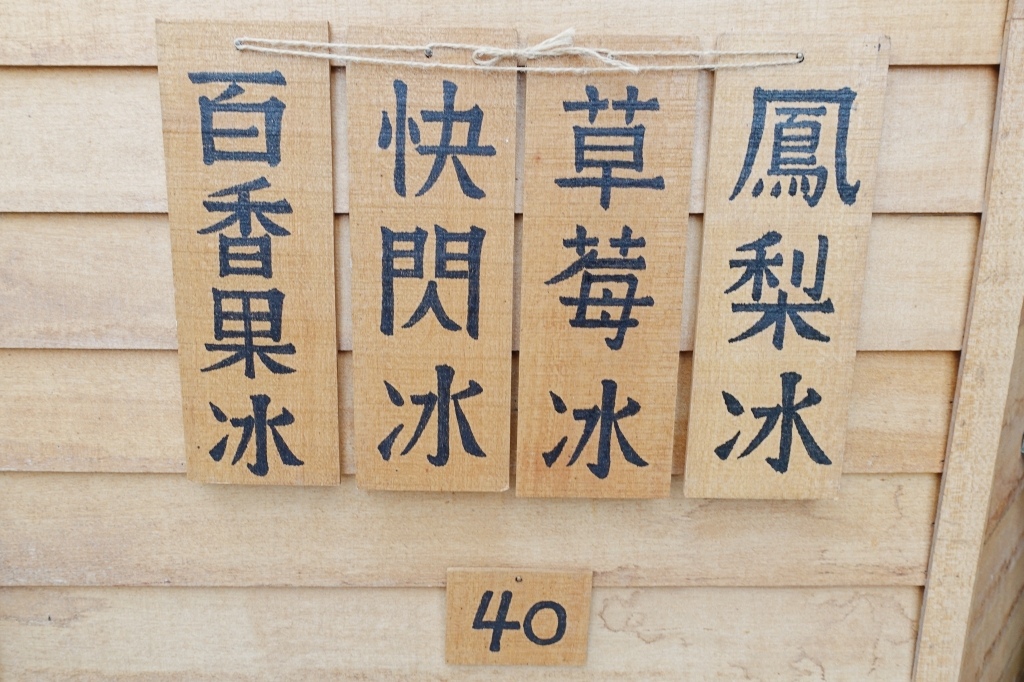 鳳梨冰
草莓冰
快閃冰
百香果冰
40